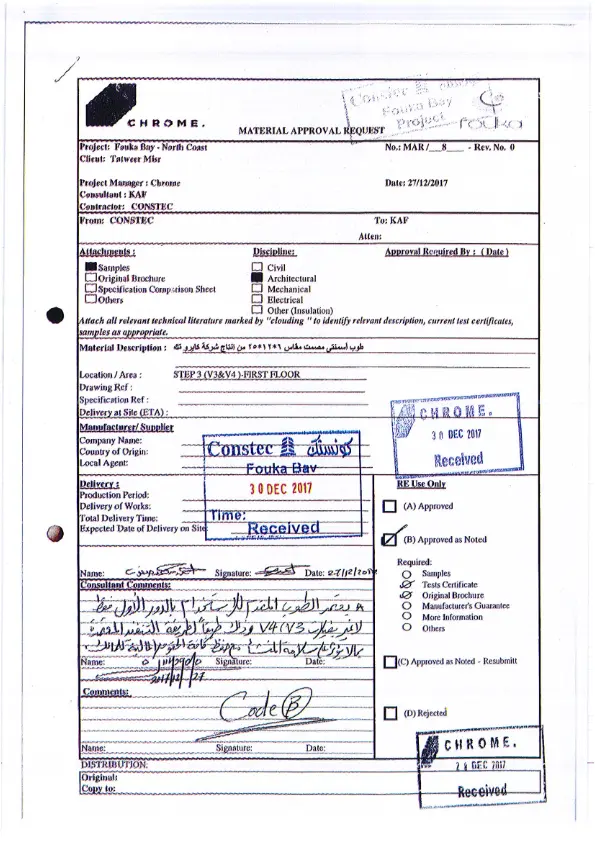 Constec
Fouka Bay
Project
fouka
CHROME.
MATERIAL APPROVAL REQUEST
Project: Fouka Bay - North Coast
No.: MAR /__8___ - Rev. No. 0
Client: Tatweer Misr
Project Manager : Chrome
Date: 27/12/2017
Consultant : KAF
Contractor: CONSTEC
From: CONSTEC
To: KAF
Atten:
Attachments :
Discipline:
Approval Required By : ( Date )
Samples
Civil
Original Brochure
Architectural
Specification Comparison Sheet
Mechanical
Others
Electrical
Other (Insulation)
Attach all relevant technical literature marked by "clouding " to identify relevant description, current test certificates,
samples as appropriate.
Material Description : طوب أسمنتي مصمت مقاس ٢٥*١٢*٦ من إنتاج شركة كايرو تك
Location / Area : STEP 3 (V3&V4 )-FIRST FLOOR
Drawing Ref :
Specification Ref :
Delivery at Site (ETA) :
CHROME.
30 DEC 2017
Received
Manufacturer/ Supplier
Company Name:
Country of Origin:
Local Agent:
Constec كونستك
Fouka Bay
30 DEC 2017
Time:
Received
Delivery :
Production Period:
Delivery of Works:
Total Delivery Time:
Expected Date of Delivery on Site:
RE Use Only
(A) Approved
(B) Approved as Noted
Required:
Samples
Tests Certificate
Original Brochure
Manufacturer's Guarantee
More Information
Others
(C) Approved as Noted - Resubmitt
(D) Rejected
Name: Signature: Date: 27/12/2017
Consultant Comments:
يعتمد الطوب المقدم للإستخدام بالدور الأول فقط
V4 / V3 وذلك طبقاً لطريقة التنفيذ
Name: Signature: Date:
2017/12/27
Comments:
Code B
Name: Signature: Date:
DISTRIBUTION:
Original:
Copy to:
CHROME.
DEC 2017
Received